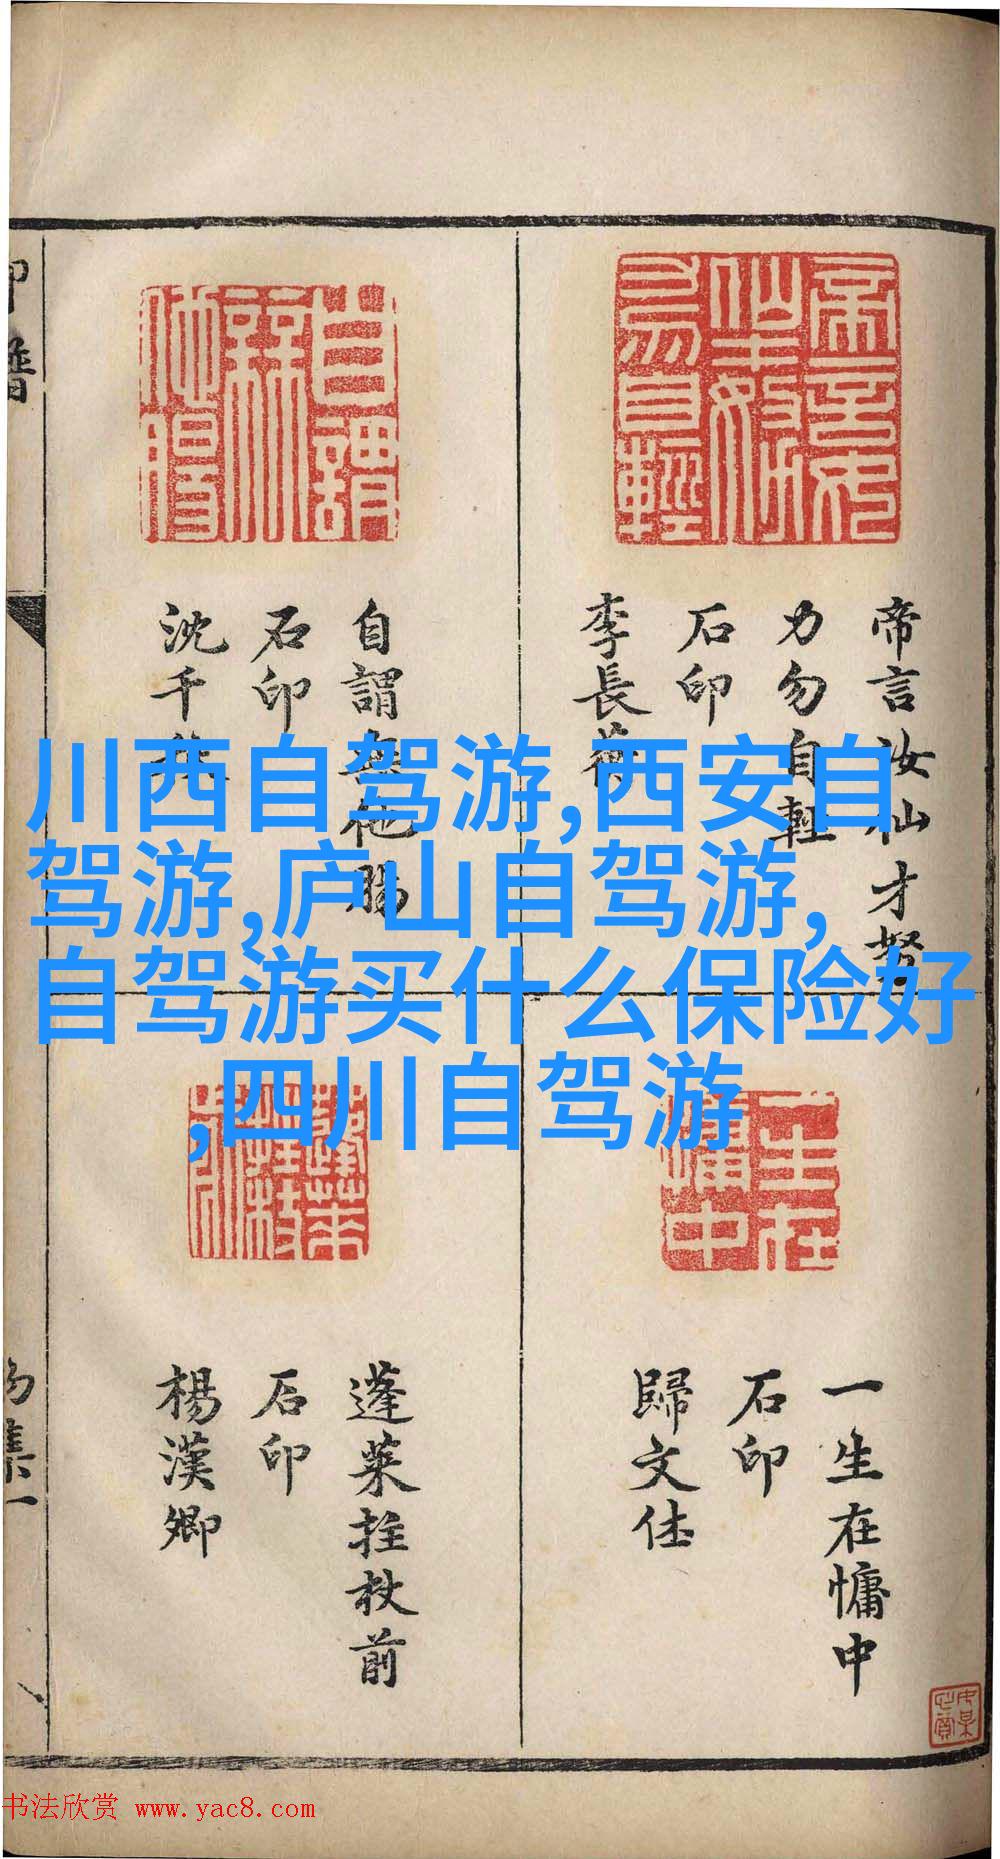 川西自驾游,西安自
驾游,庐山自驾游,
自驾游买什么保险好
,四川自驾游
帝言汝仙才努
力勿自輕
石印
李長蘅
自謂無他腸
石印
沈千
一生在慵中
石印
歸文休
蓬萊拄杖前
石印
楊漢卿
书法欣赏 www.yac8.com